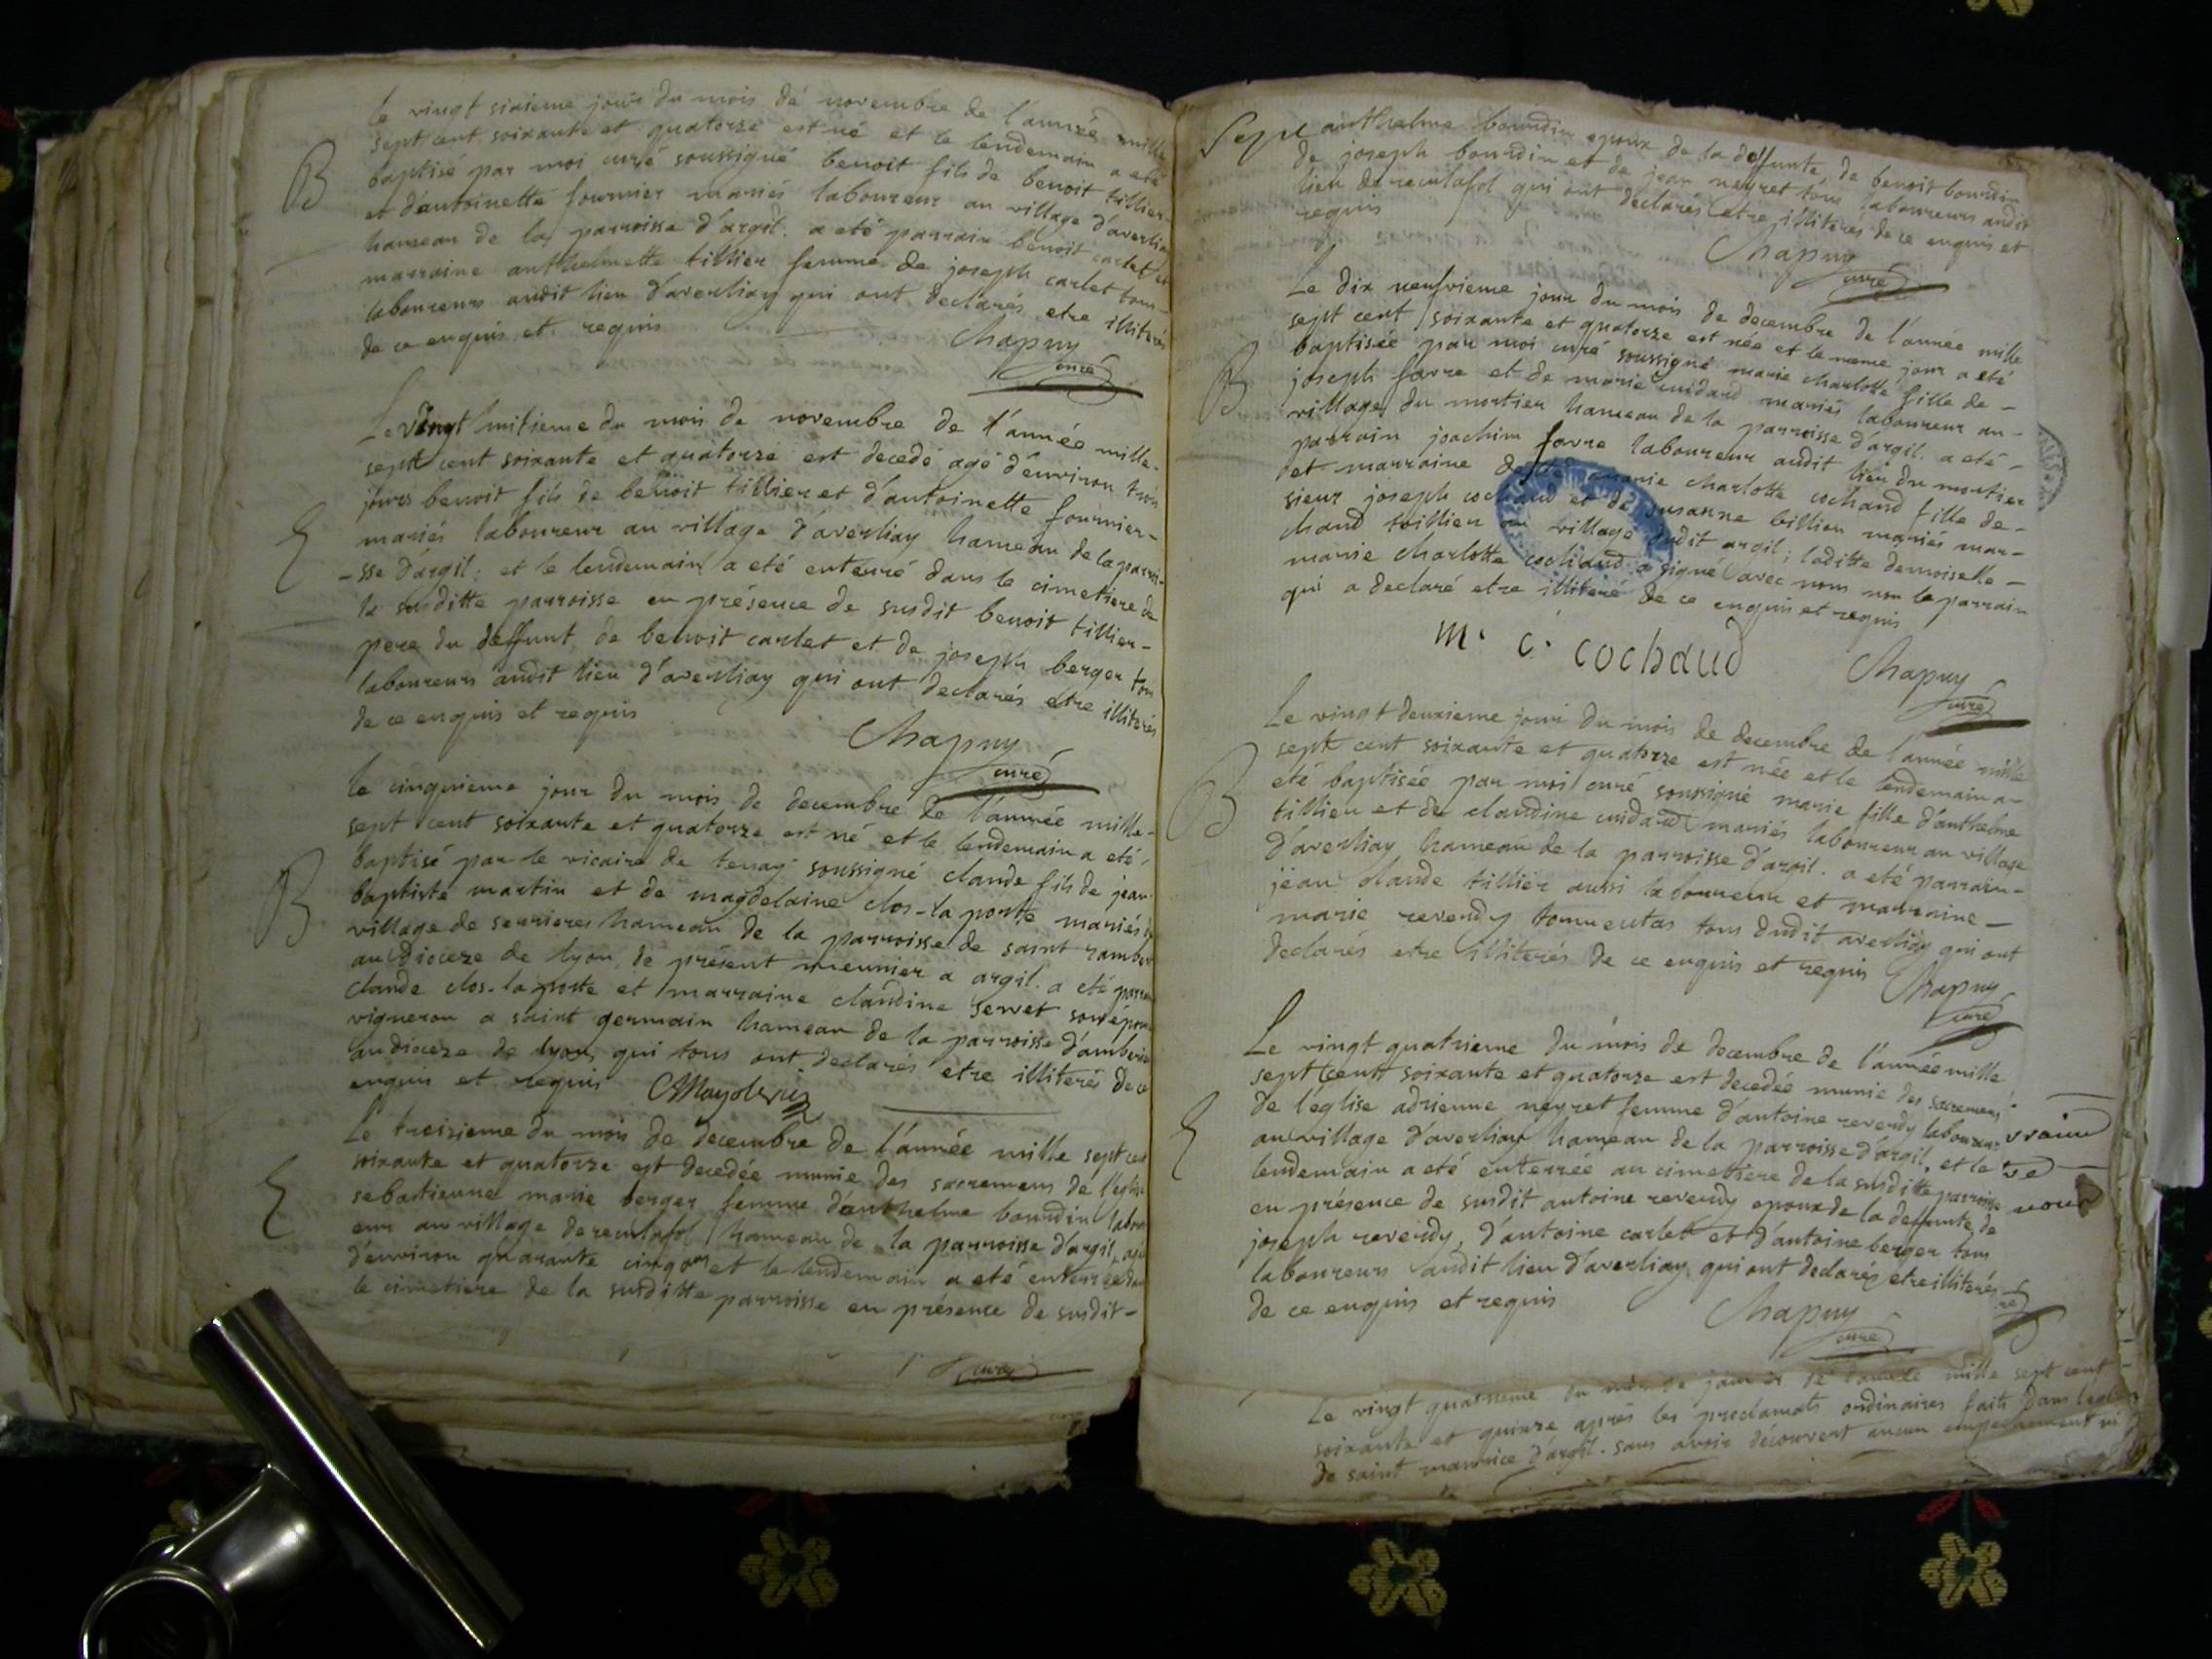 le vingt sixieme jour du mois de novembre de l'année mille
sept cent soixante et quatorze est né et le lendemain a eté
B
baptisé par moi curé soussigné benoit fils de benoit tillier
et d'antoinette fournier mariés laboureur au village d'averliay
hameau de la parroisse d'argil. a eté parrain benoit carlet et
marraine anthelmette tillier femme de joseph carlet tous
laboureurs audit lieu d'averliay qui ont declarés etre illiterés
de ce enquis et requis
Chapuy
curé
Le vingt huitieme du mois de novembre de l'année mille
sept cent soixante et quatorze est decedé agé d'environ trois
jours benoit fils de benoit tillier et d'antoinette fournier -
E
mariés laboureur au village d'averliay hameau de la parroi-
-sse d'argil; et le lendemain a eté enterré dans le cimetiere de
la susditte parroisse en présence de susdit benoit tillier -
pere du deffunt, de benoit carlet et de joseph berger tous
laboureurs audit lieu d'averliay qui ont declarés etre illiterés
de ce enquis et requis
Chapuy
curé
le cinquieme jour du mois de decembre de l'année mille
sept cent soixante et quatorze est né et le lendemain a eté
B
baptisé par le vicaire de tenay soussigné claude fils de jean
baptiste martin et de magdelaine clos-la porte mariés
village de serrieres hameau de la parroisse de saint rambert
au dioceze de lyon, de présent meunier a argil. a eté parrain
claude clos-la porte et marraine claudine servet son épouse
vigneron a saint germain hameau de la parroisse d'amberieu
au dioceze de lyon, qui tous ont declarés etre illiterés de ce
enquis et requis
Le treizieme du mois de decembre de l'année mille sept cent
E
soixante et quatorze est decedée munie des sacremens de l'eglise
sebastienne marie berger femme d'anthelme bourdin labour
eur au village de reculafol hameau de la parroisse d'argil, agée
d'environ quarante cinq ans et le lendemain a eté enterrée dans
le cimetiere de la susditte parroisse en présence de susdit -
curé
anthelme bourdin epoux de la deffunte, de benoit bourdin
de joseph bourdin et de jean neyret tous laboureurs audit
lieu de reculafol qui ont declarés etre illiterés de ce enquis et
requis
Chapuy
curé
Le dix neufvieme jour du mois de decembre de l'année mille
sept cent soixante et quatorze est née et le meme jour a eté
B
baptisée par moi curé soussigné marie charlotte fille de -
joseph favre et de marie cuidard mariés laboureur au -
village du mortier hameau de la parroisse d'argil. a eté -
parrain joachim favre laboureur audit lieu du mortier
et marraine marie charlotte cochaud fille de -
sieur joseph cochaud et de susanne billieu mariés mar-
chand au village dudit argil; laditte demoiselle -
marie charlotte cochaud a signé avec nous non le parrain
qui a declaré etre illiteré de ce enquis et requis
m. c. cochaud
Chapuy
curé
Le vingt deuxieme jour du mois de decembre de l'année mille
sept cent soixante et quatorze est née et le lendemain a
B
eté baptisée par moi curé soussigné marie fille d'anthelme
tillier et de claudine cuidard mariés laboureur au village
d'averliay hameau de la parroisse d'argil. a eté parrain -
jean claude tillier aussi laboureur et marraine -
marie reverdy tous dudit averliay qui ont
declarés etre illiterés de ce enquis et requis
Chapuy
curé
Le vingt quatrieme du mois de decembre de l'année mille
sept cent soixante et quatorze est decedée munie des sacremens
E
de l'église adrienne neyret femme d'antoine reverdy laboureur
au village d'averliay hameau de la parroisse d'argil, et le
lendemain a eté enterrée au cimetiere de la susditte parroisse
en présence de susdit antoine reverdy epoux de la deffunte de
joseph reverdy, d'antoine carlet et d'antoine berger tous
laboureurs audit lieu d'averliay qui ont declarés etre illiterés
de ce enquis et requis
Chapuy
curé
Le vingt quatrieme du mois de janvier de l'année mille sept cent
soixante et quinze aprés les proclamats ordinaires faits dans l'eglise
de saint maurice d'argil. sans avoir découvert aucun empechement ni